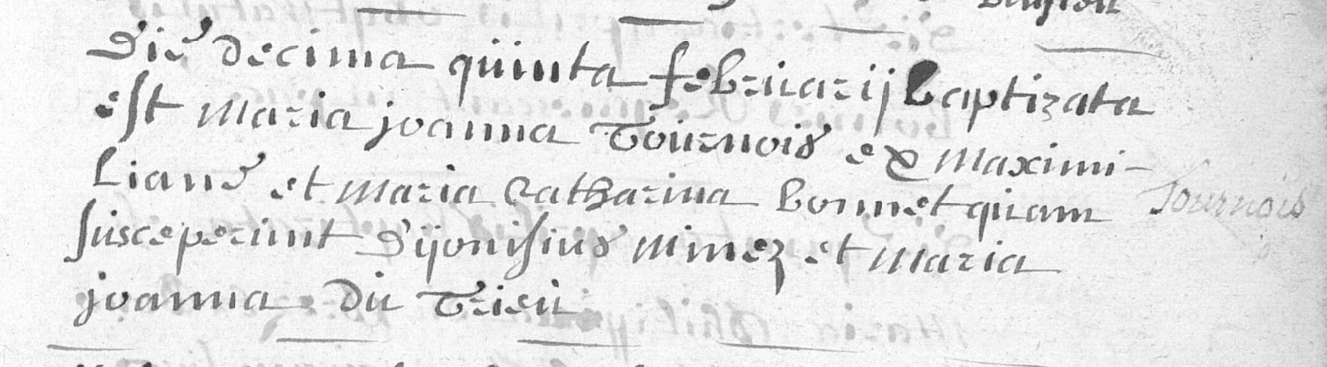 Die decima quinta februarij baptizata
est maria joanna Tournois ex maximi-
liano et maria Catharina bonnet quam
susceperunt Dijonisius minez et maria
joanna du Trieu
Tournois